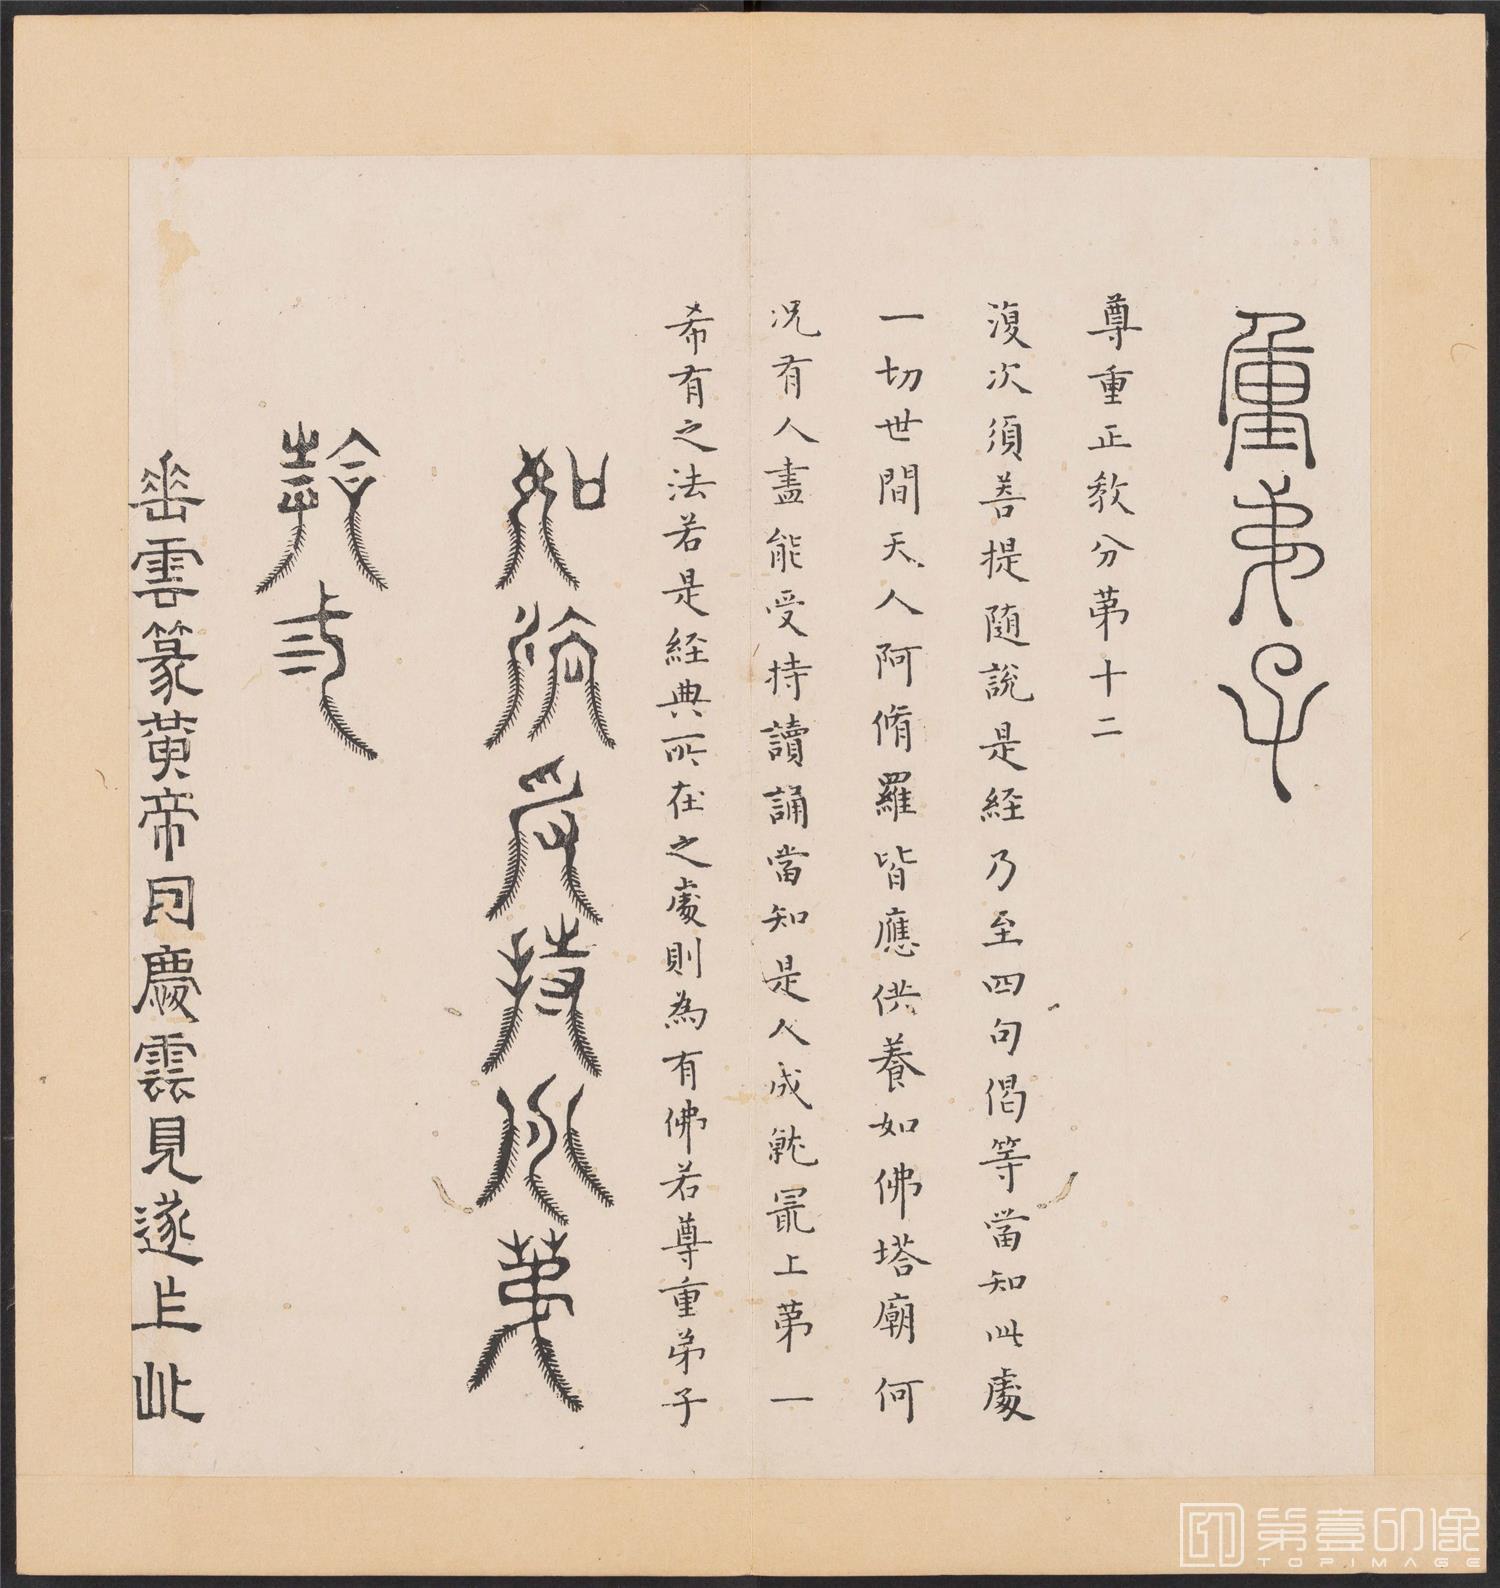 重弟子
尊重正教分第十二
復次須菩提隨說是経乃至四句偈等當知此處
一切世間天人阿脩羅皆應供養如佛塔廟何
況有人盡能受持讀誦當知是人成就最上第一
希有之法若是経典所在之處則為有佛若尊重弟子
如法受持分第
弎
垂雲篆黄帝因慶雲見遂乍此
第壹印像
TOPIMAGE